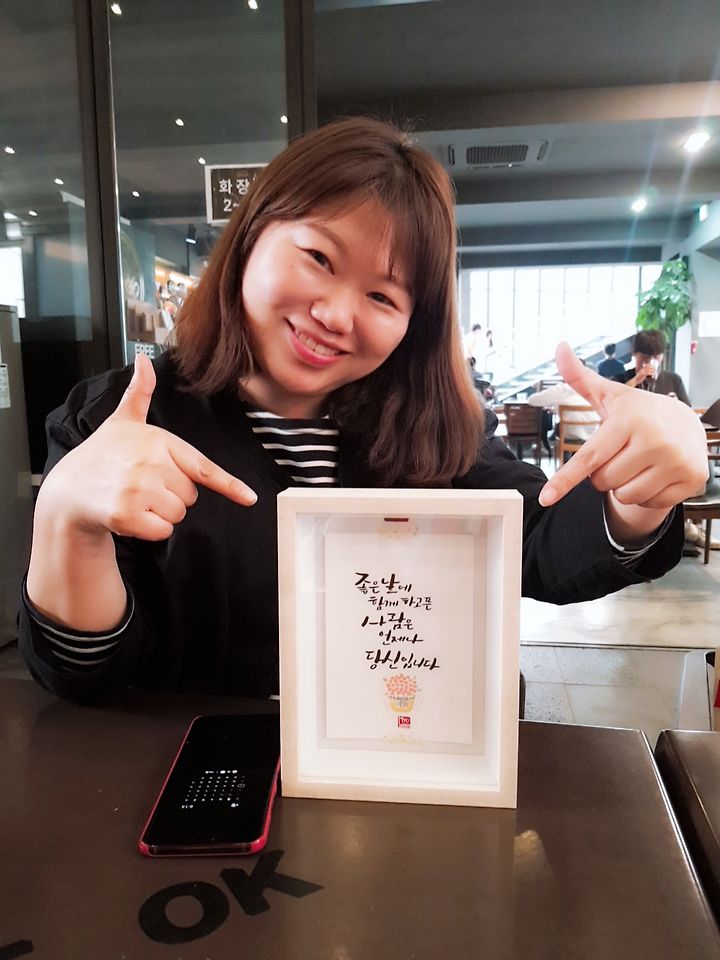 화장
2~
좋은날에
함께하고픈
사람은
언제나
당신입니다
OK